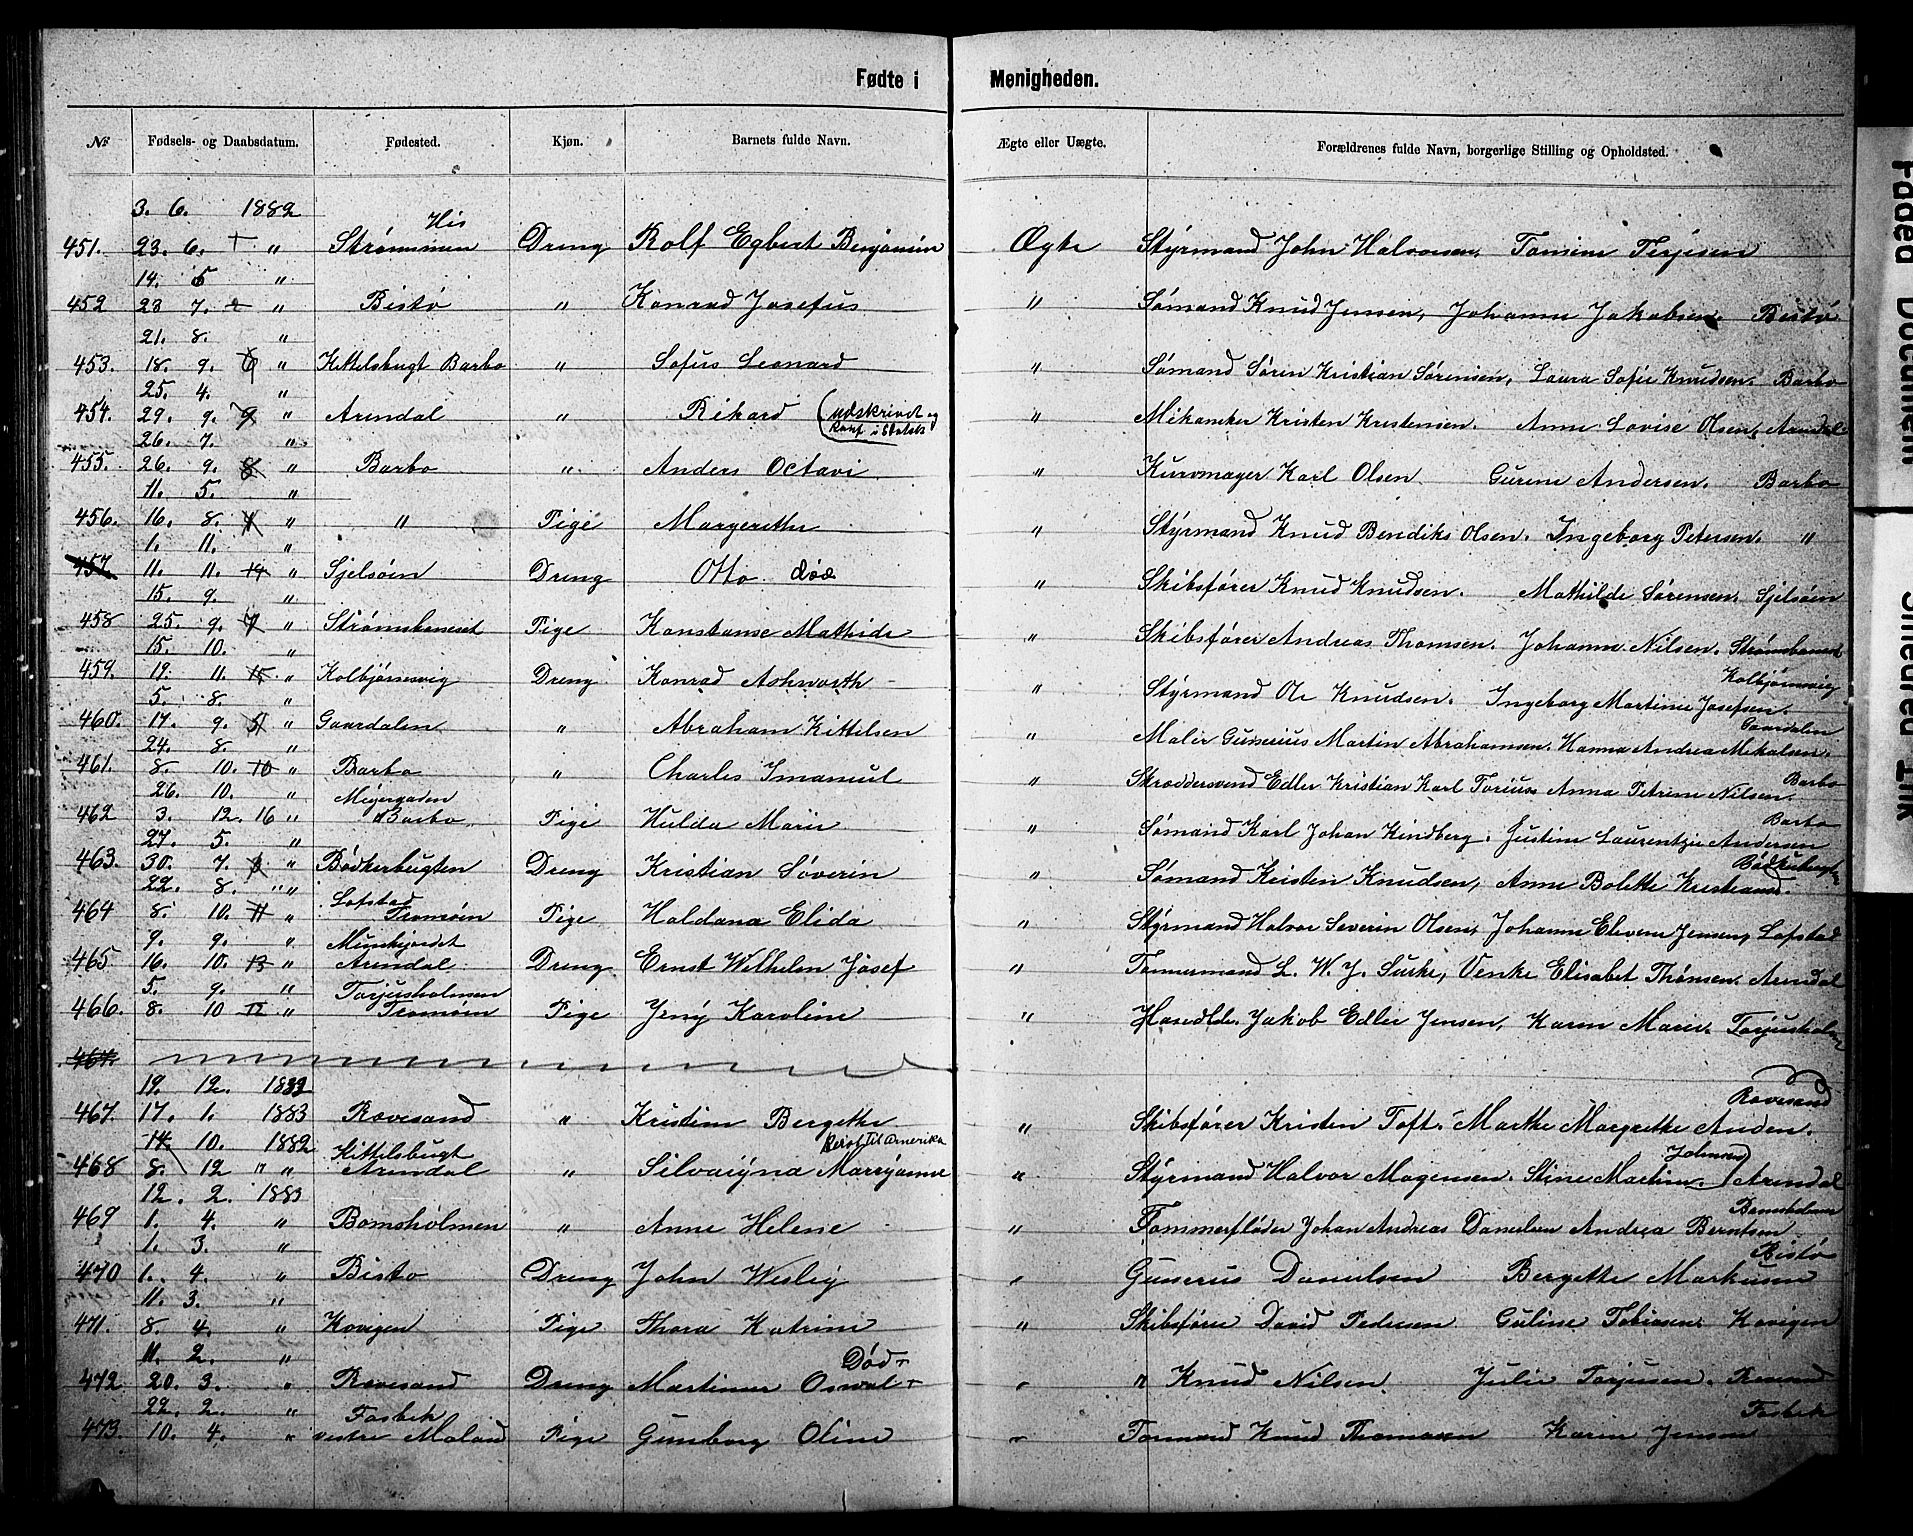 Fødte i Menigheden.
Nr. Fødsels- og Daabsdatum. Fødested. Kjøn. Barnets fulde Navn. Ægte eller Uægte. Forældrenes fulde Navn, borgerlige Stilling og Opholdsted.
3. 6. 1882 His
451. 23. 6. " Strømmen Dreng Rolf Egbert Benjamin Ægte Styrmand John Halvorsen. Tomine Terjesen
14. 5 "
452 23 7. 2 " Bistø " Konrad Josefus " Sømand Knud Jensen, Johanne Jakobsen. Bistø
21. 8. "
453. 18. 9. 6 " Kittelsbugt Barbo " Sofus Leonard " Sømand Søren Kristian Sørensen, Laura Sofie Knudsen. Barbo
25. 4. "
454. 29. 9. 9 " Arendal " Rikard (udskrivet og " Mikaniker Kristen Kristensen. Anne Lovise Olsen, Arendal
26. 7. "
455. 26. 9. 8 " Barbo " Anders Octavi " Kurvmager Karl Olsen. Gurine Andersen. Barbo
11. 5. "
456. 16. 8. 4 " " Pige Margerithe " Styrmand Knud Bendiks Olsen. Ingeborg Petersen. "
1. 11. "
457. 11. 11. 14 " Sjelsøin Dreng Otto død " Skibsfører Knud Knudsen. Mathilde Sørensen. Sjelsøin
15. 9. "
458 25. 9. 7 " Strømsbuneset Pige Konstanse Mathide " Skibsfører Andreas Thomsen. Johanne Nilsen. Strømsbuneset
15. 10. "
459. 19. 11. 15 " Kolbjørnsvig Dreng Konrad Ashworth " Styrmand Ole Knudsen. Ingeborg Martine Josefsen. Kolbjørnsvig
5. 8. "
460. 17. 9. 5 " Gaardalen " Abraham Kittelsen " Maler Gunerius Martin Abrahamsen. Hanna Andrea Mikalsen. Gaardalen
24. 8. "
461. 8. 10. 10 " Barbo " Charles Imanuel " Skræddersvend Edler Kristian Karl Toriuss Anna Petrine Nilsen. Barbo
26. 10. " Meyergaden
462 3. 12. 16 " Barbo. Pige Hulda Marie " Sømand Karl Johan Kindberg. Justine Laurentzie Andersen Barbo
27. 5. "
463. 30. 7. 3 " Bødkerbugten Dreng Kristian Søverin " Sømand Kristen Knudsen, Anne Bolette Kristiansd. Bødkerbugten
22. 8. " " Lofstad
464 8. 10. 11 " Tromøin Pige Haldana Elida " Styrmand Halvor Severin Olsen, Johanne Elevene Jensen, Lofstad
9. 9. " Munkjordet
465 16. 10. 13 " Arendal Dreng. Ernst Wilhelm Josef " Tømmermand L. W. J. Surke, Venke Elisabet Thønsen. Arendal
5. 9. " Torjusholmen
466. 8. 10 12 " Tromøin Pige Jeny Karoline " Jakob Edler Jensen, Karen Marie. Torjusholmen
467.
19. 12. 1882
467. 17. 1. 1883 Rævesand " Kristine Bergethe Skibsfører Kristen Toft. Marthe Margrethe Anden. Rævesand
14. 10. 1882 Kittelsbugt Rejst til Amerika
468 8. 12 " " Arendal " Silvaigna Marryanne " Styrmand Halvor Mogensen. Stine Martine. Johnsen) Arendal
12. 2. 1883
469 1. 4. " Bomsholmen " Anne Helene " Tømmerfløder Johan Andreas Danielsen Andrea Berntsen Bomsholmen
1. 3. "
470 1. 4. " Bistø Dreng John Wesley " Gunerius Danielsen Bergette Markusen Bistø
11. 3. "
471. 8. 4. " Kovigen Pige Thora Katrine " Skibsfører David Pedersen Guline Tobiasen. Kovigen
11. 2. " Død
472 20. 3. " Rævesand Dreng Martiner Osval " " Knud Nilsen. Julie Torjusen. Rævesand
22. 2. " Fosbek
473. 10. 4. " vestre Moland Pige Gunborg Oline " Formand Knud Thomasen Karin Jensen Fosbek
Faded Document Smeared Ink